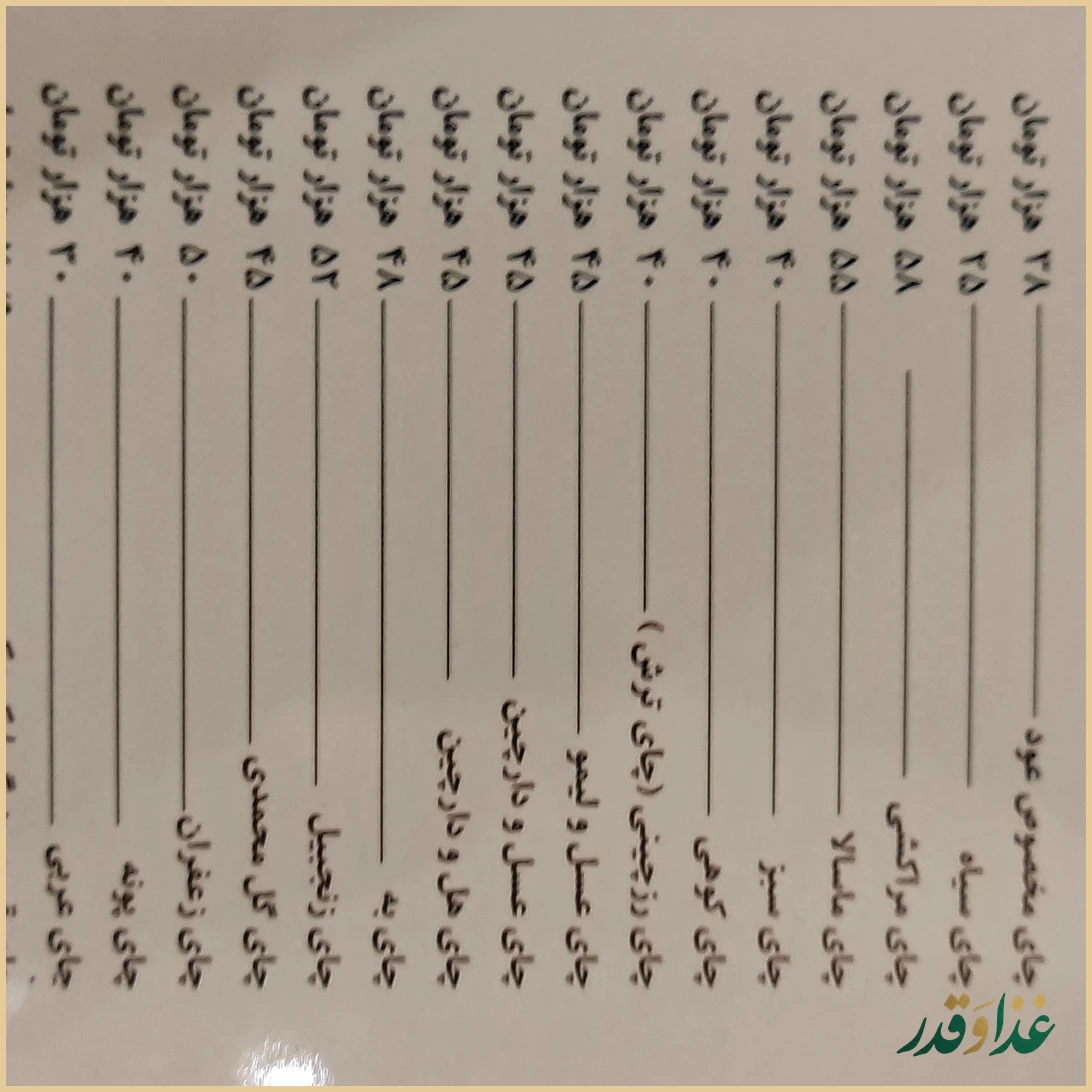 چای مخصوص عود ۳۸ هزار تومان
چای سیاه ۲۵ هزار تومان
چای مراکشی ۵۸ هزار تومان
چای ماسالا ۵۵ هزار تومان
چای سبز ۴۰ هزار تومان
چای کوهی ۴۰ هزار تومان
چای رزچینی (چای ترش ) ۴۰ هزار تومان
چای عسل و لیمو ۴۵ هزار تومان
چای عسل و دارچین ۴۵ هزار تومان
چای هل و دارچین ۴۵ هزار تومان
چای به ۴۸ هزار تومان
چای زنجبیل ۵۲ هزار تومان
چای گل محمدی ۴۵ هزار تومان
چای زعفران ۵۰ هزار تومان
چای پونه ۴۰ هزار تومان
چای عربی ۳۰ هزار تومان
غذا و قدر